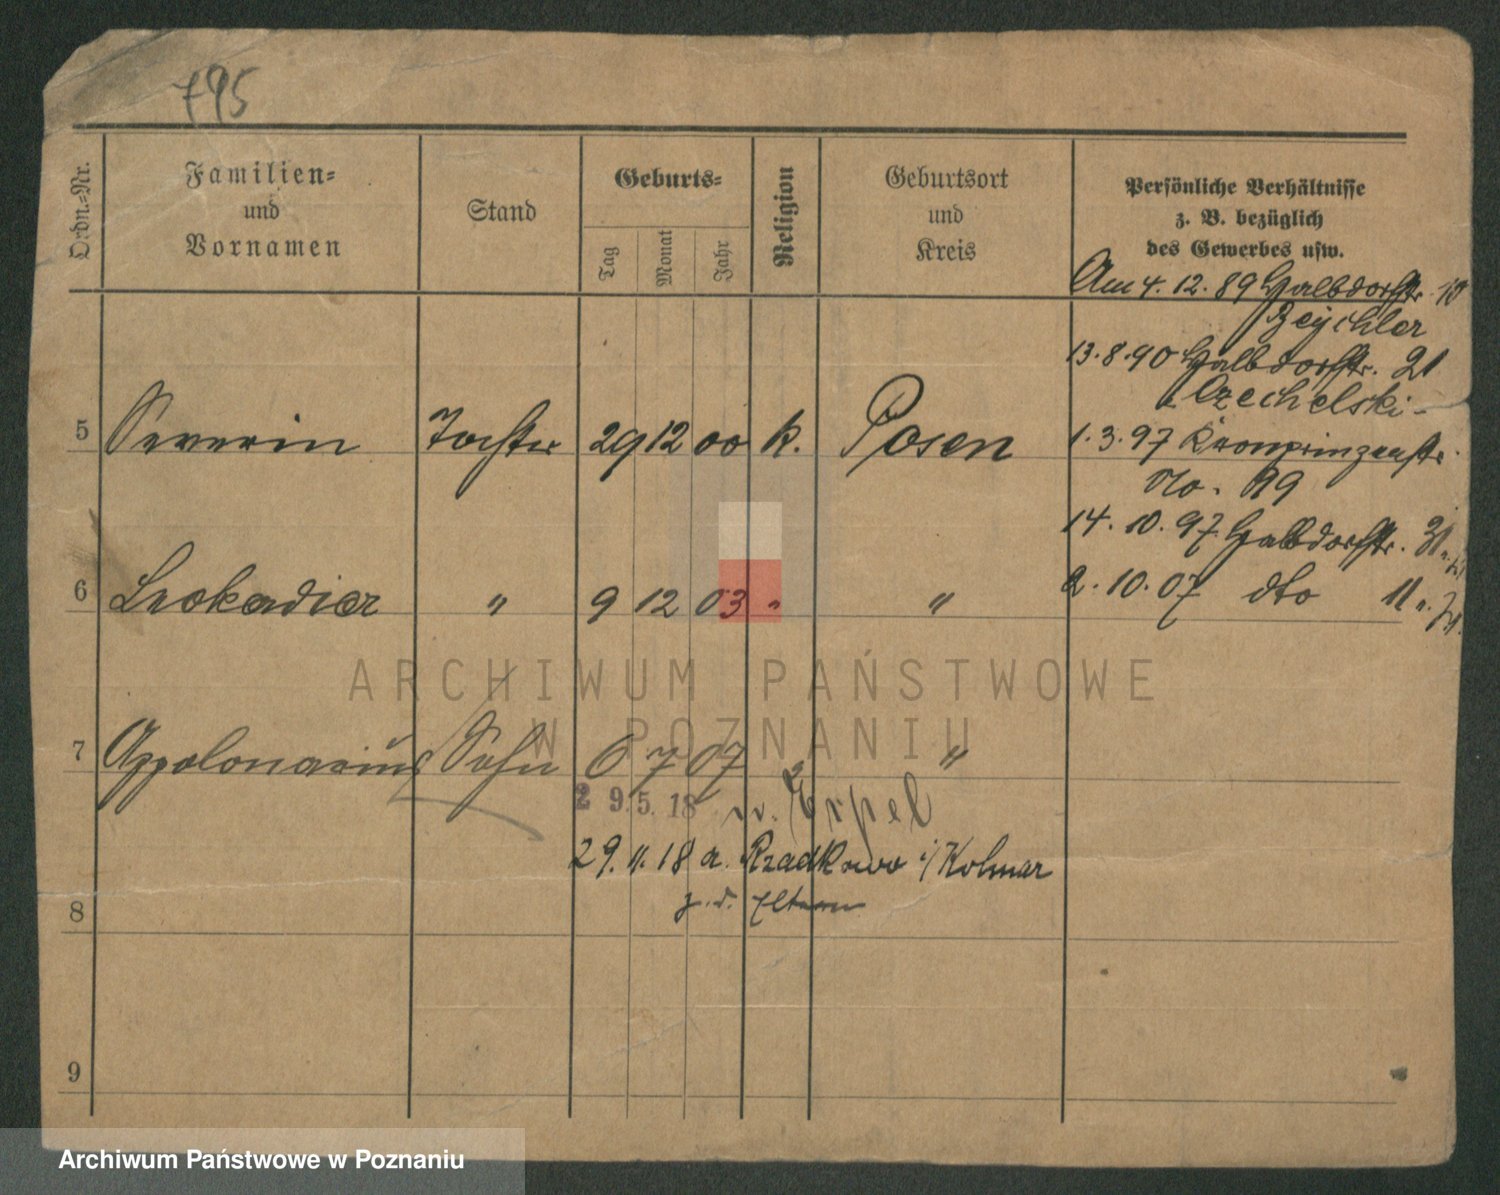 795
Ordn.-Nr.
Familien-
und
Vornamen
Stand
Geburts-
Tag
Monat
Jahr
Religion
Geburtsort
und
Kreis
Persönliche Verhältnisse
z. B. bezüglich
des Gewerbes usw.
Am 4. 12. 89 Halbdorfstr. 10
Zeychler
13. 8. 90 Halbdorfstr. 21
Czechelski
5 Severin Tochter 29 12 00 k. Posen
1. 3. 97 Kronprinzenstr.
No. 99
14. 10. 97 Halbdorfstr. 31
6 Leokadia " 9 12 03 " "
2. 10. 07 dto 11
7 Appolonarius Sohn 6 7 07 "
2 9. 5. 18 n. Erpel
29. 11. 18 a. Rzadkowo i/ Kolmar
8 z. d. Eltern
9
ARCHIWUM PAŃSTWOWE
W POZNANIU
Archiwum Państwowe w Poznaniu